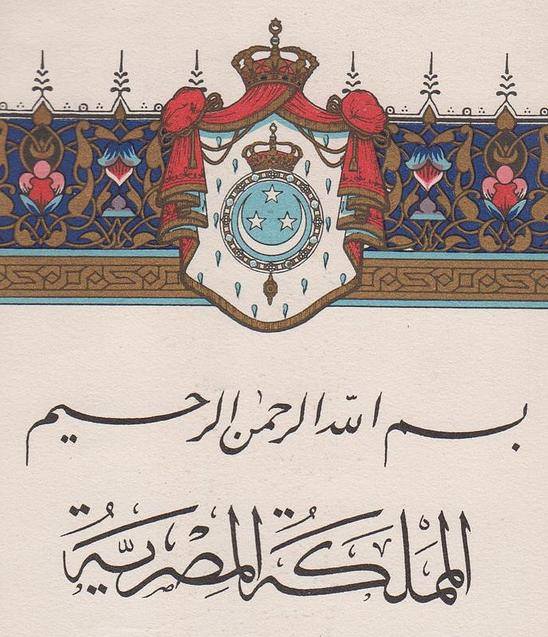 بسم الله الرحمن الرحيم
المملكة المصرية